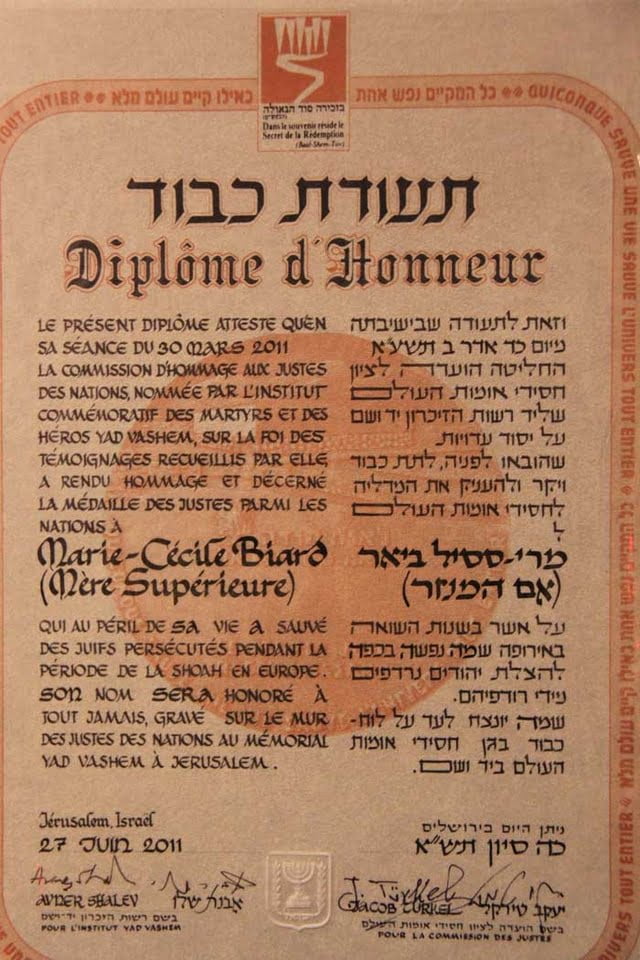 בזכירה סוד הגאולה
(הבעש"ט)
Dans le souvenir réside le
Secret de la Rédemption
(Baal-Shem-Tov)
TOUT ENTIER
כאילו קיים עולם מלא
כל המקיים נפש אחת
QUICONQUE SAUVE UNE VIE SAUVE L'UNIVERS TOUT ENTIER
תעודת כבוד
Diplôme d'Honneur
LE PRÉSENT DIPLÔME ATTESTE QU'EN
SA SÉANCE DU 30 MARS 2011
LA COMMISSION D'HOMMAGE AUX JUSTES
DES NATIONS, NOMMÉE PAR L'INSTITUT
COMMÉMORATIF DES MARTYRS ET DES
HÉROS YAD VASHEM, SUR LA FOI DES
TÉMOIGNAGES RECUEILLIS PAR ELLE,
A RENDU HOMMAGE ET DÉCERNÉ
LA MÉDAILLE DES JUSTES PARMI LES
NATIONS À
Marie-Cécile Biard
(Mère Supérieure)
QUI AU PÉRIL DE SA VIE A SAUVÉ
DES JUIFS PERSÉCUTÉS PENDANT LA
PÉRIODE DE LA SHOAH EN EUROPE.
SON NOM SERA HONORÉ À
TOUT JAMAIS, GRAVE SUR LE MUR
DES JUSTES DES NATIONS AU MÉMORIAL
YAD VASHEM À JERUSALEM.
וזאת לתעודה שבישיבתה
מיום כד אדר ב תשע"א
החליטה הועדה לציון
חסידי אומות העולם
שליד רשות הזיכרון יד ושם
על יסוד עדויות
שהובאו לפניה, לתת כבוד
ויקר ולהעניק את המדליה
לחסידי אומות העולם
ל
מרי-ססיל ביאר
(אם המנזר)
על אשר בשנות השואה
באירופה שמה נפשה בכפה
להצלת יהודים נרדפים
מידי רודפיהם.
שמה יונצח לעד על לוח-
כבוד בגן חסידי אומות
העולם ביד ושם.
Jérusalem, Israël
27 JUIN 2011
ניתן היום בירושלים
כה סיון תשע"א
AVNER SHALEV אבנר שלו
בשם רשות הזיכרון יד-ושם
POUR L'INSTITUT YAD VASHEM
JACOB TÜRKEL יעקב טירקל
בשם הועדה לציון חסידי אומות העולם
POUR LA COMMISSION DES JUSTES